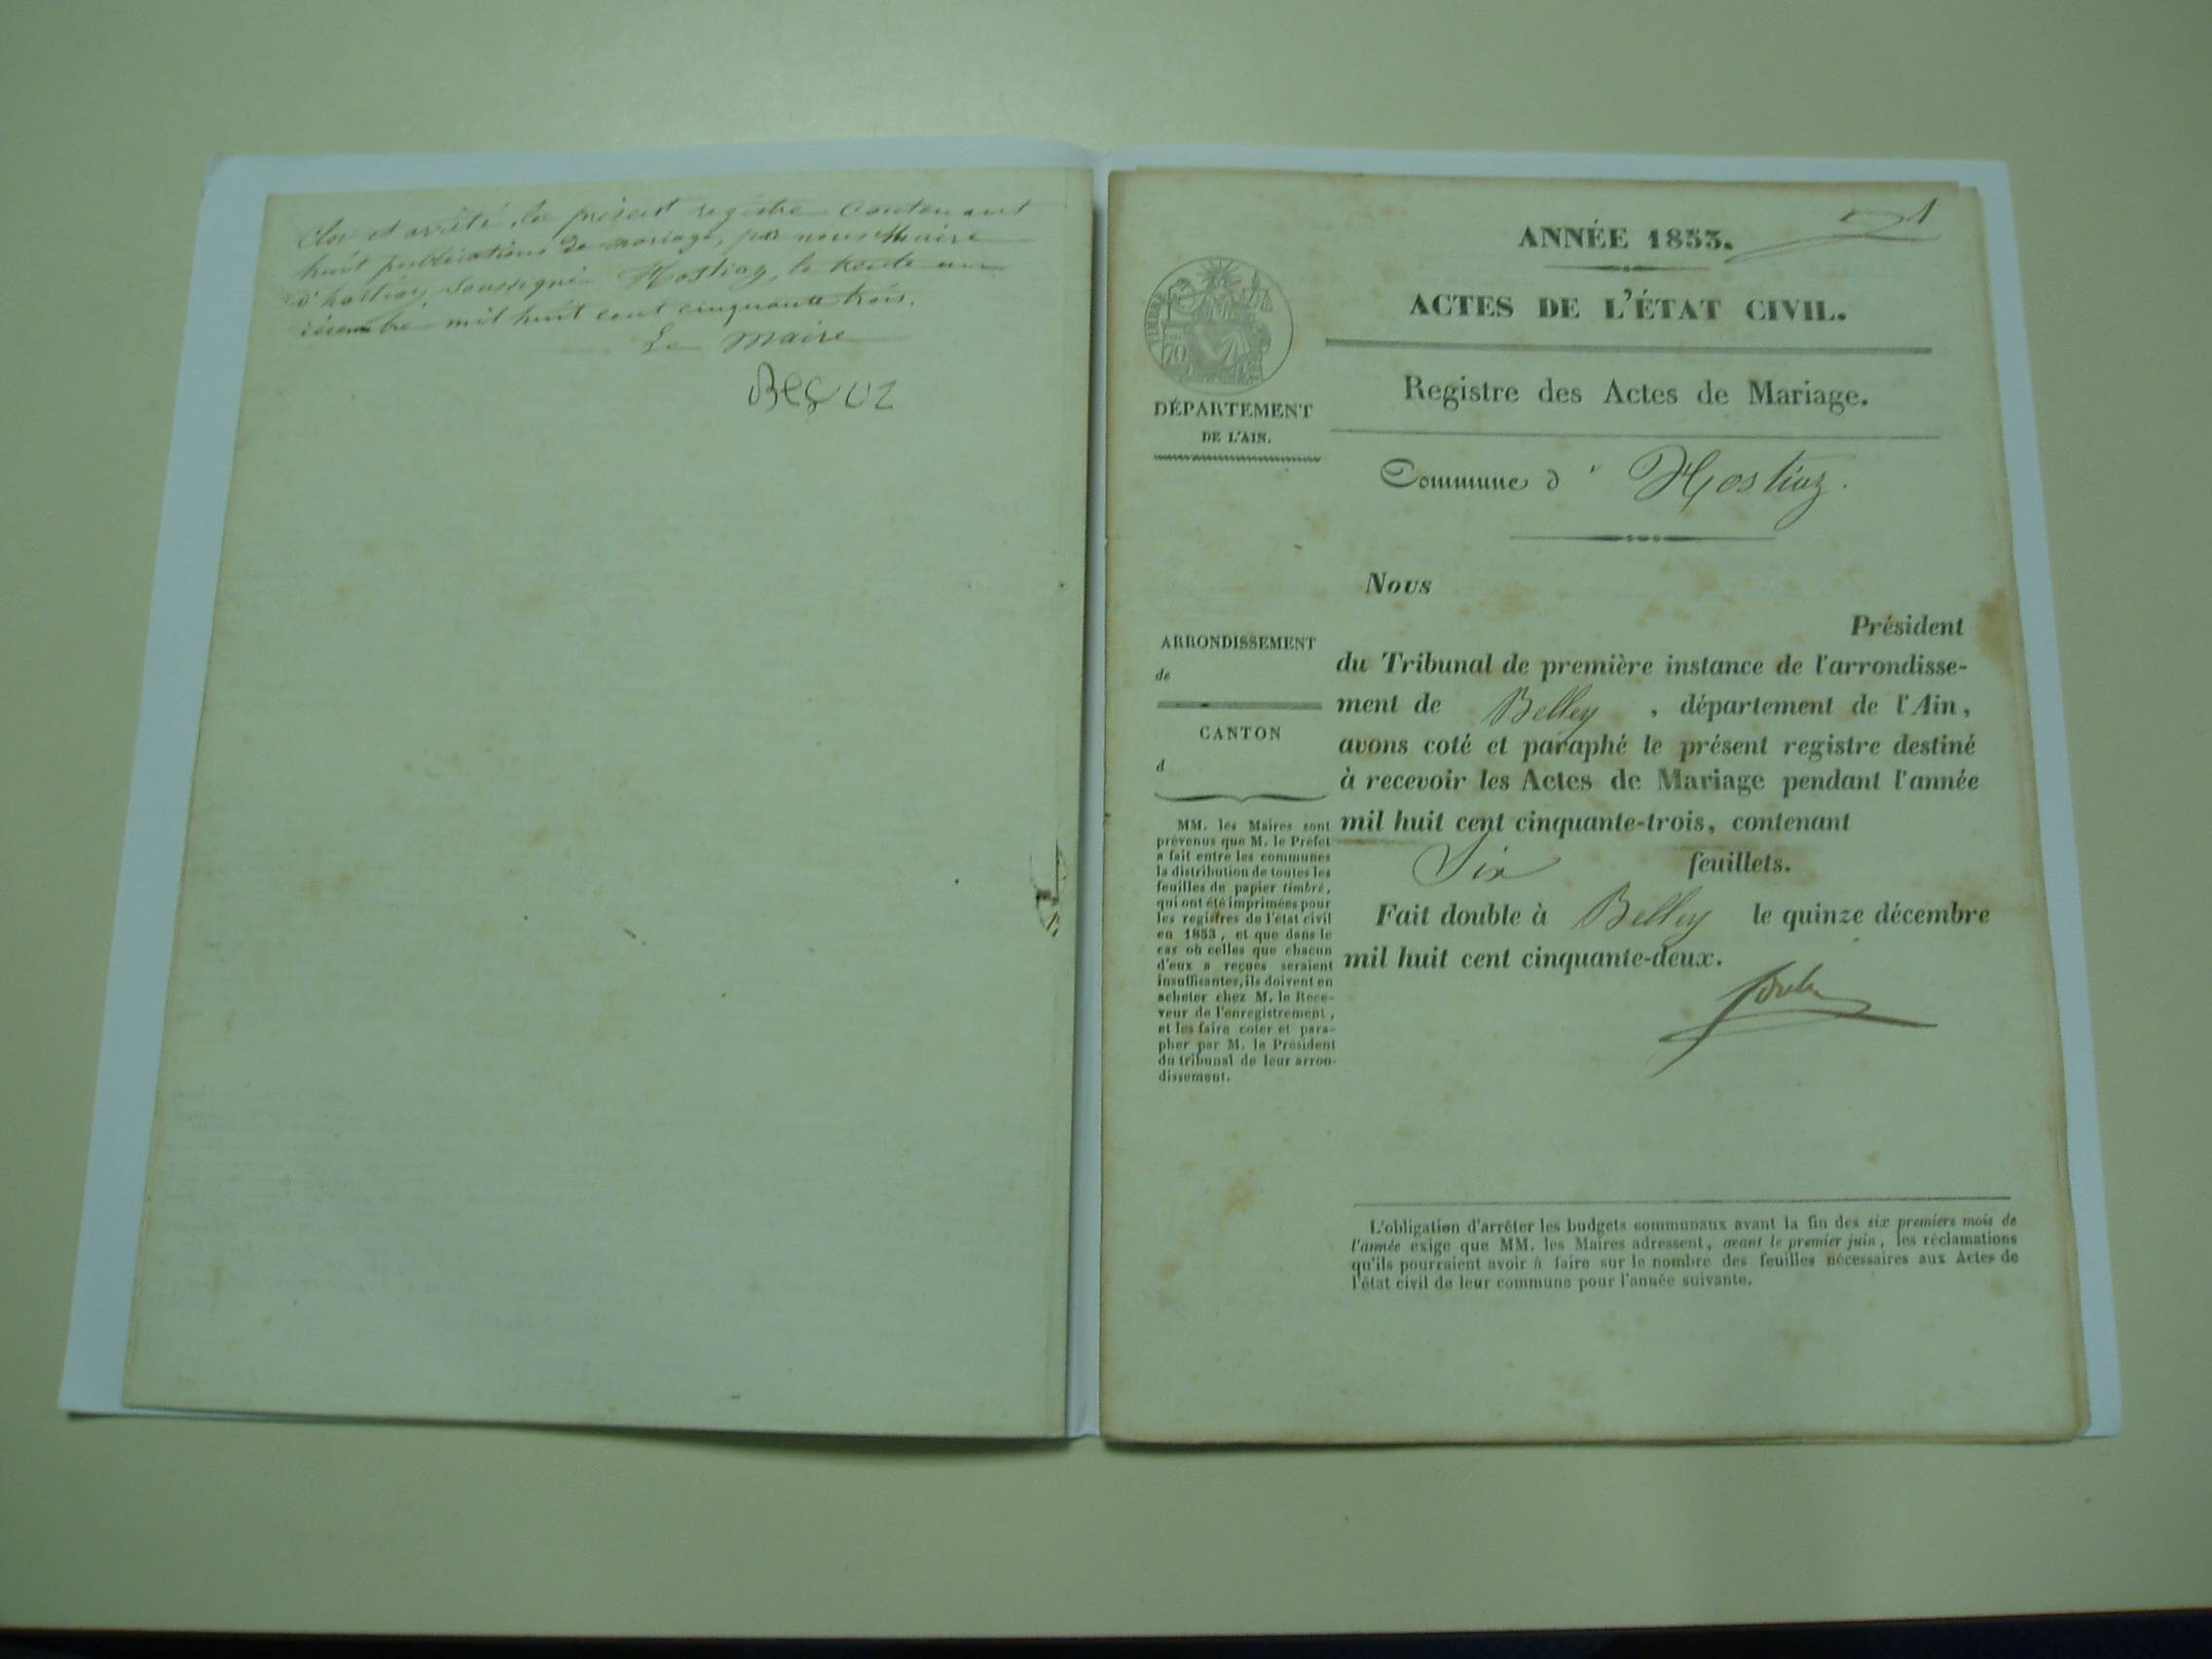 Clos et arrêté le présent registre contenant
huit publications de mariage, par nous Maire
d'hostiaz, soussigné Hostiaz, le trente un
décembre mil huit cent cinquante trois.
Le Maire
ANNÉE 1853.
1
ACTES DE L'ÉTAT CIVIL.
TIMBRE
70
DÉPARTEMENT
DE L'AIN.
Registre des Actes de Mariage.
Commune d' Hostiaz.
Nous
Président
du Tribunal de première instance de l'arrondisse-
ment de Belley, département de l'Ain,
avons coté et paraphé le présent registre destiné
à recevoir les Actes de Mariage pendant l'année
mil huit cent cinquante-trois, contenant
Six feuillets.
Fait double à Belley le quinze décembre
mil huit cent cinquante-deux.
ARRONDISSEMENT
de
CANTON
d
MM. les Maires sont
prévenus que M. le Préfet
a fait entre les communes
la distribution de toutes les
feuilles de papier timbré,
qui ont été imprimées pour
les registres de l'état civil
en 1853, et que dans le
cas où celles que chacun
d'eux a reçues seraient
insuffisantes, ils doivent en
acheter chez M. le Rece-
veur de l'enregistrement,
et les faire coter et para-
pher par M. le Président
du tribunal de leur arron-
dissement.
L'obligation d'arrêter les budgets communaux avant la fin des six premiers mois de
l'année exige que MM. les Maires adressent, avant le premier juin, les réclamations
qu'ils pourraient avoir à faire sur le nombre des feuilles nécessaires aux Actes de
l'état civil de leur commune pour l'année suivante.